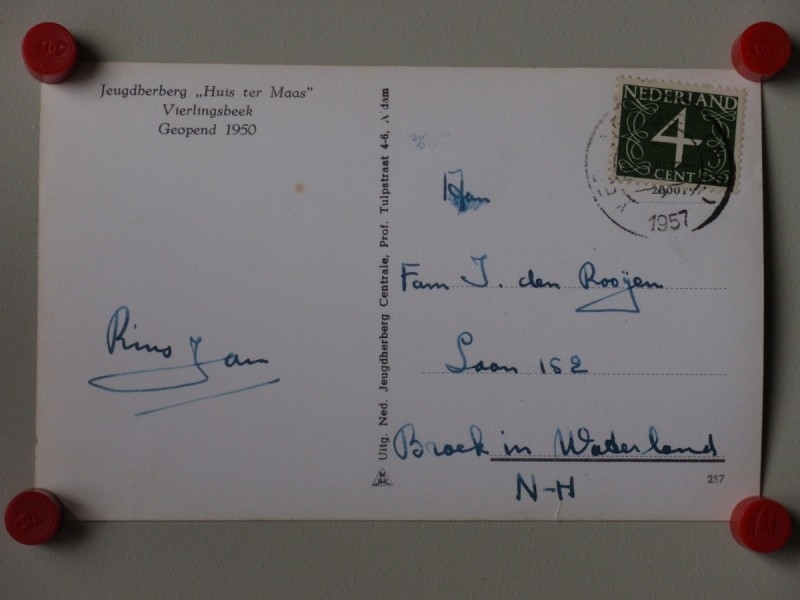 Jeugdherberg „Huis ter Maas”
Vierlingsbeek
Geopend 1950
Rins Jan
Uitg. Ned. Jeugdherberg Centrale, Prof. Tulpstraat 4-6, A'dam
NEDERLAND
4
CENT
1957
Fam J. den Rooijen
Laan 152
Broek in Waterland
N-H
257